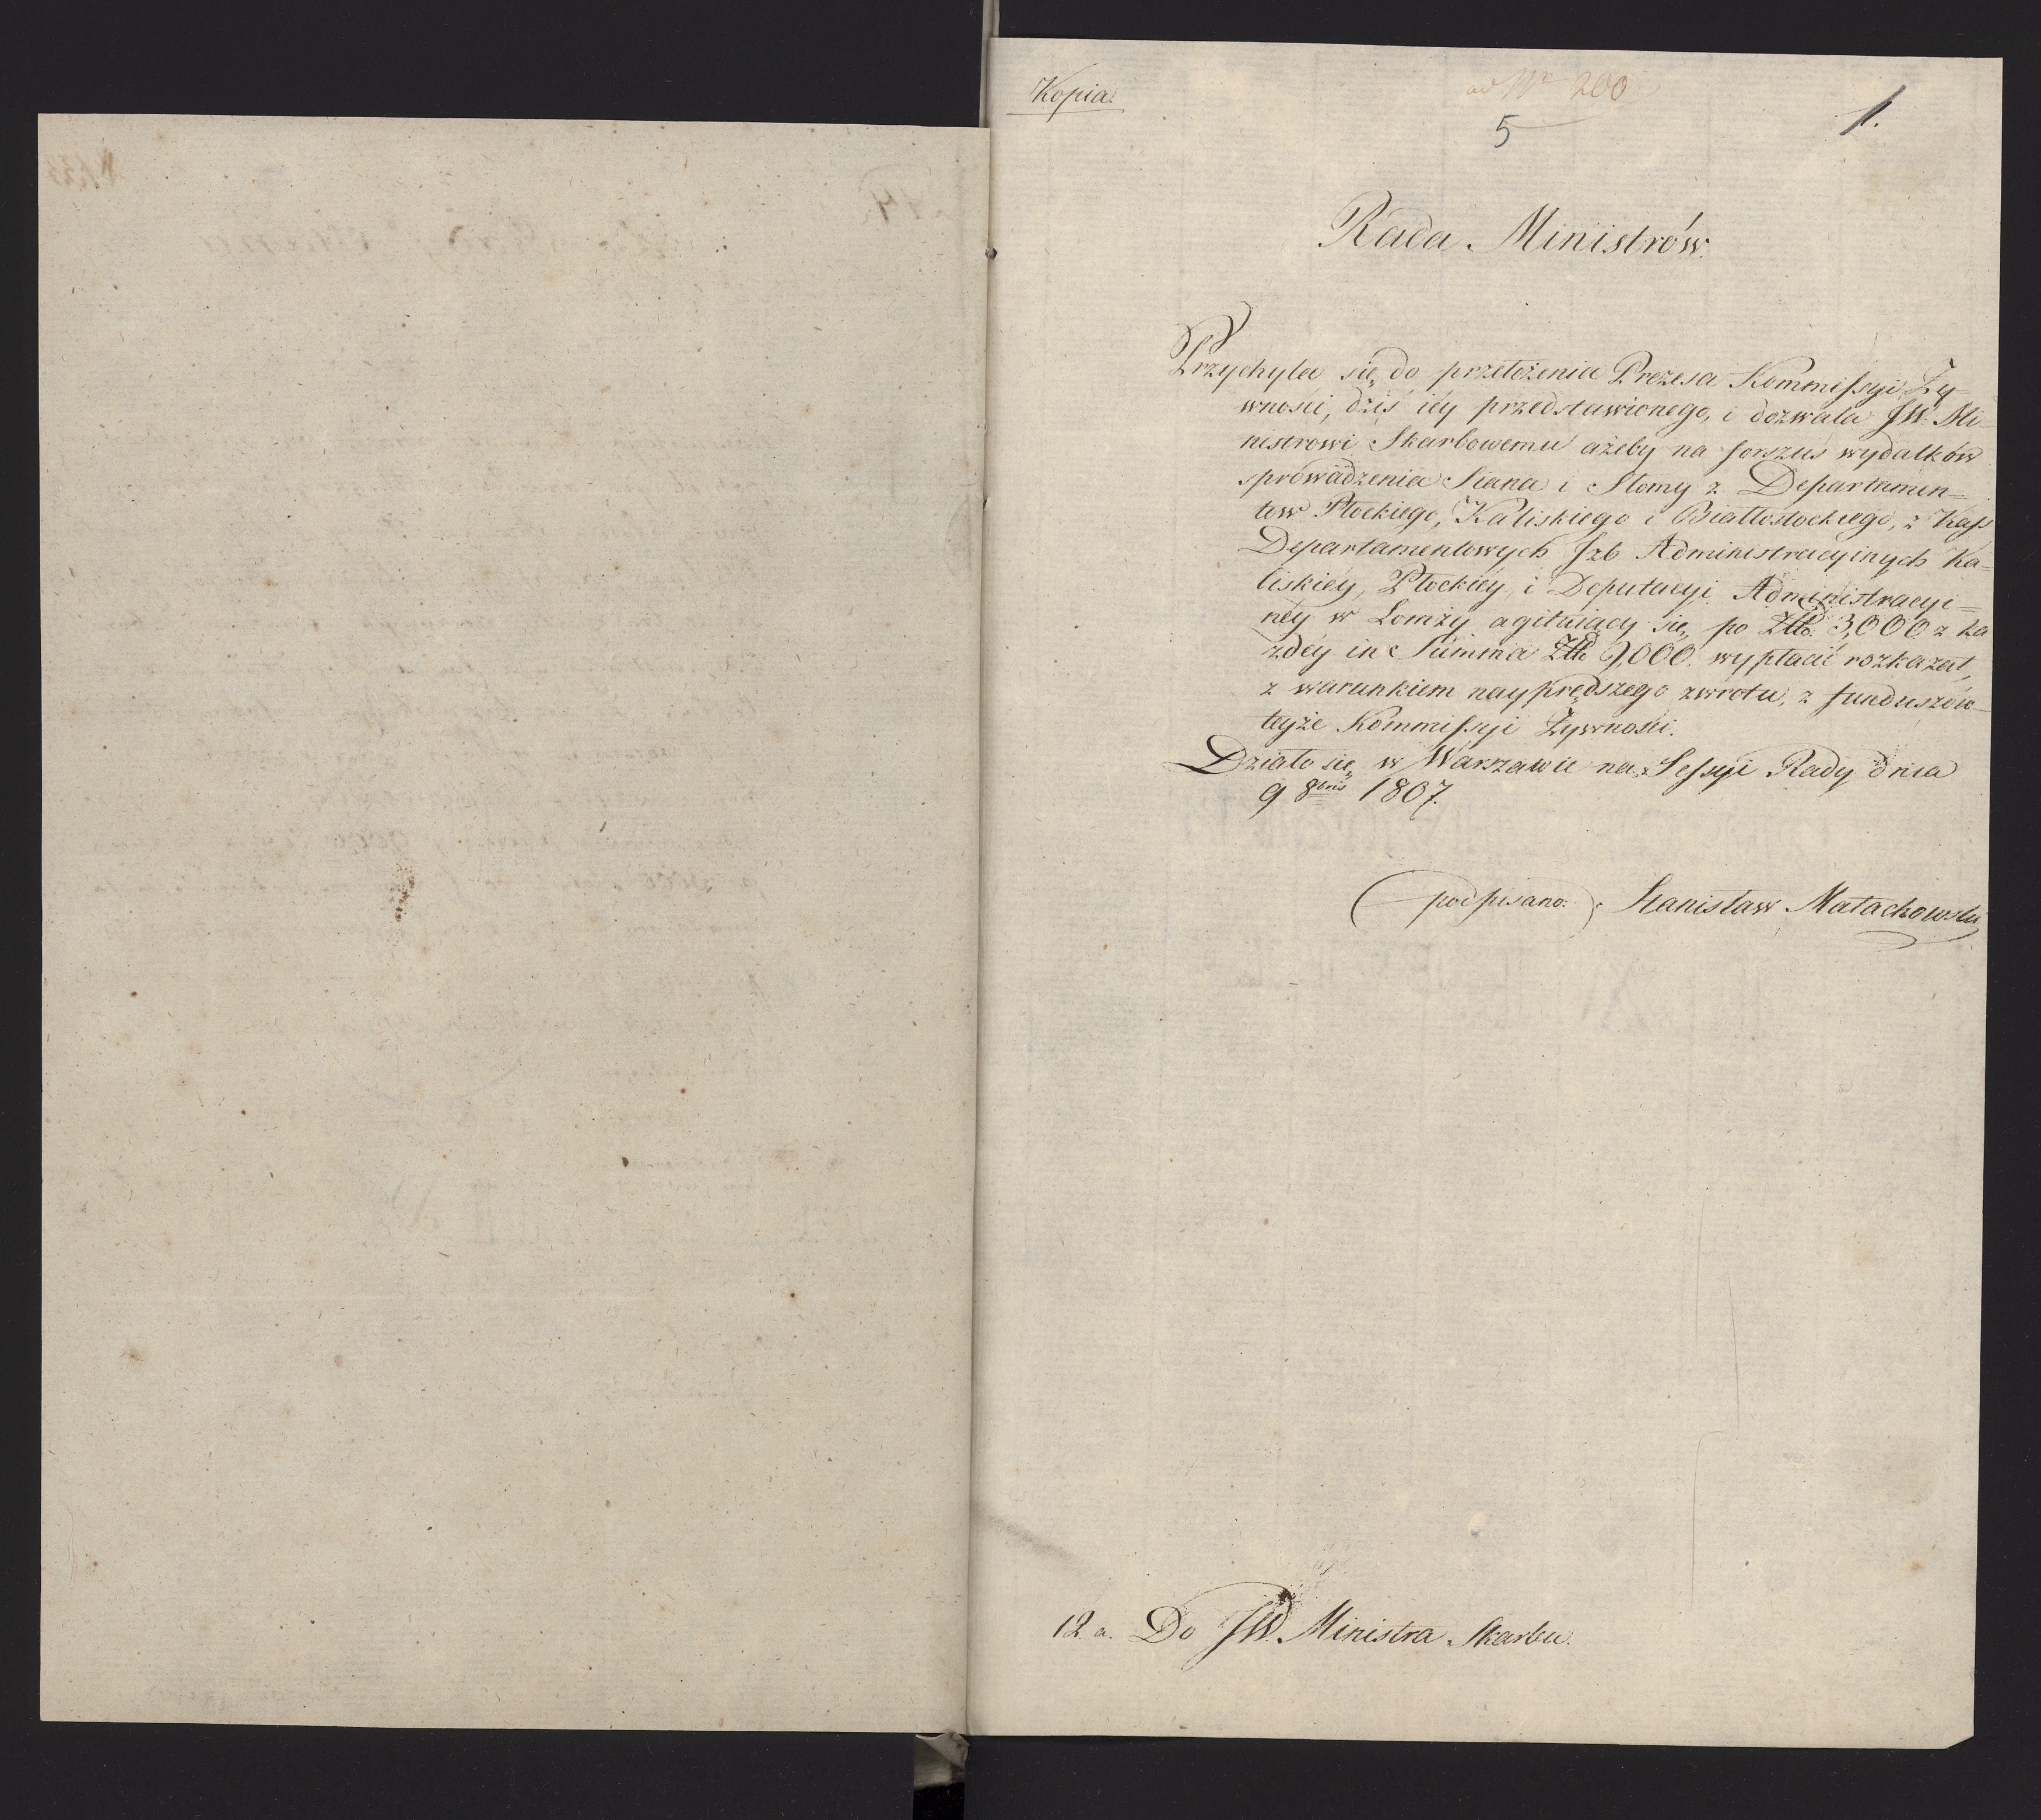 Kopia.
ad Nr 200
5
1.
Rada Ministrów.
Przychyla się do przełożenia Prezesa Kommissyi Ży
wności, dziś iey przedstawionego, i dozwala JW. Mi-
nistrowi Skarbowemu ażeby na forszus wydatków
sprowadzenia Siana i Słomy z Departamen=
tow Płockiego, Kaliskiego i Białłostockiego, z Kass
Departamentowych Jzb Administracyinych Ka=
liskiéy, Płockiéy, i Deputacyi Administracyi=
néy w Łomży agituiącéy się, po Złł. 3,000 z ka
żdéy in Summa Złł 9,000. wypłacić rozkazał,
z warunkiem nayprędszego zwrotu, z funduszów
teyże Kommissyi Żywności.
Działo się w Warszawie na Sessyi Rady dnia
9 8bris 1807.
(podpisano:) Stanisław Małachowski
12. a. Do JW. Ministra Skarbu.